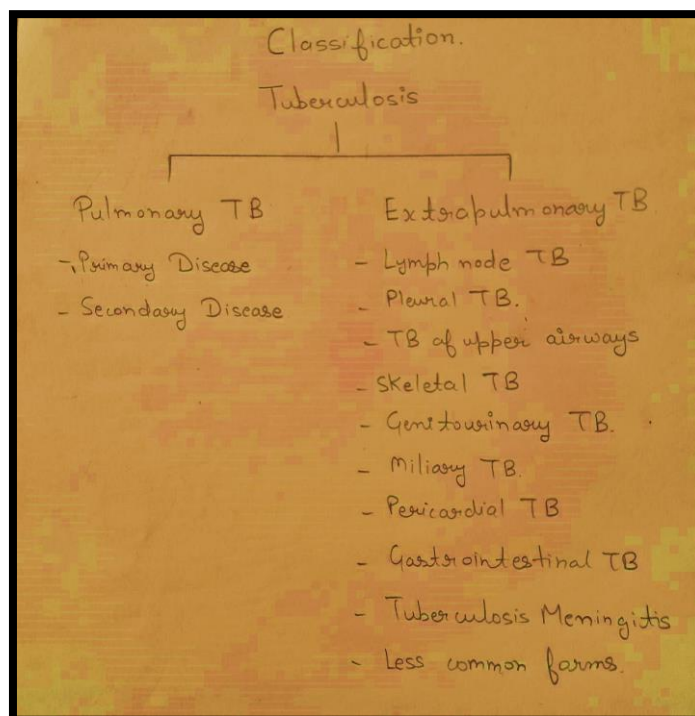 Classification.
Tuberculosis
Pulmonary TB
- Primary Disease
- Secondary Disease
Extrapulmonary TB
- Lymph node TB
- Pleural TB.
- TB of upper airways
- Skeletal TB
- Genitourinary TB.
- Miliary TB.
- Pericardial TB
- Gastrointestinal TB
- Tuberculosis Meningitis
- Less common forms.